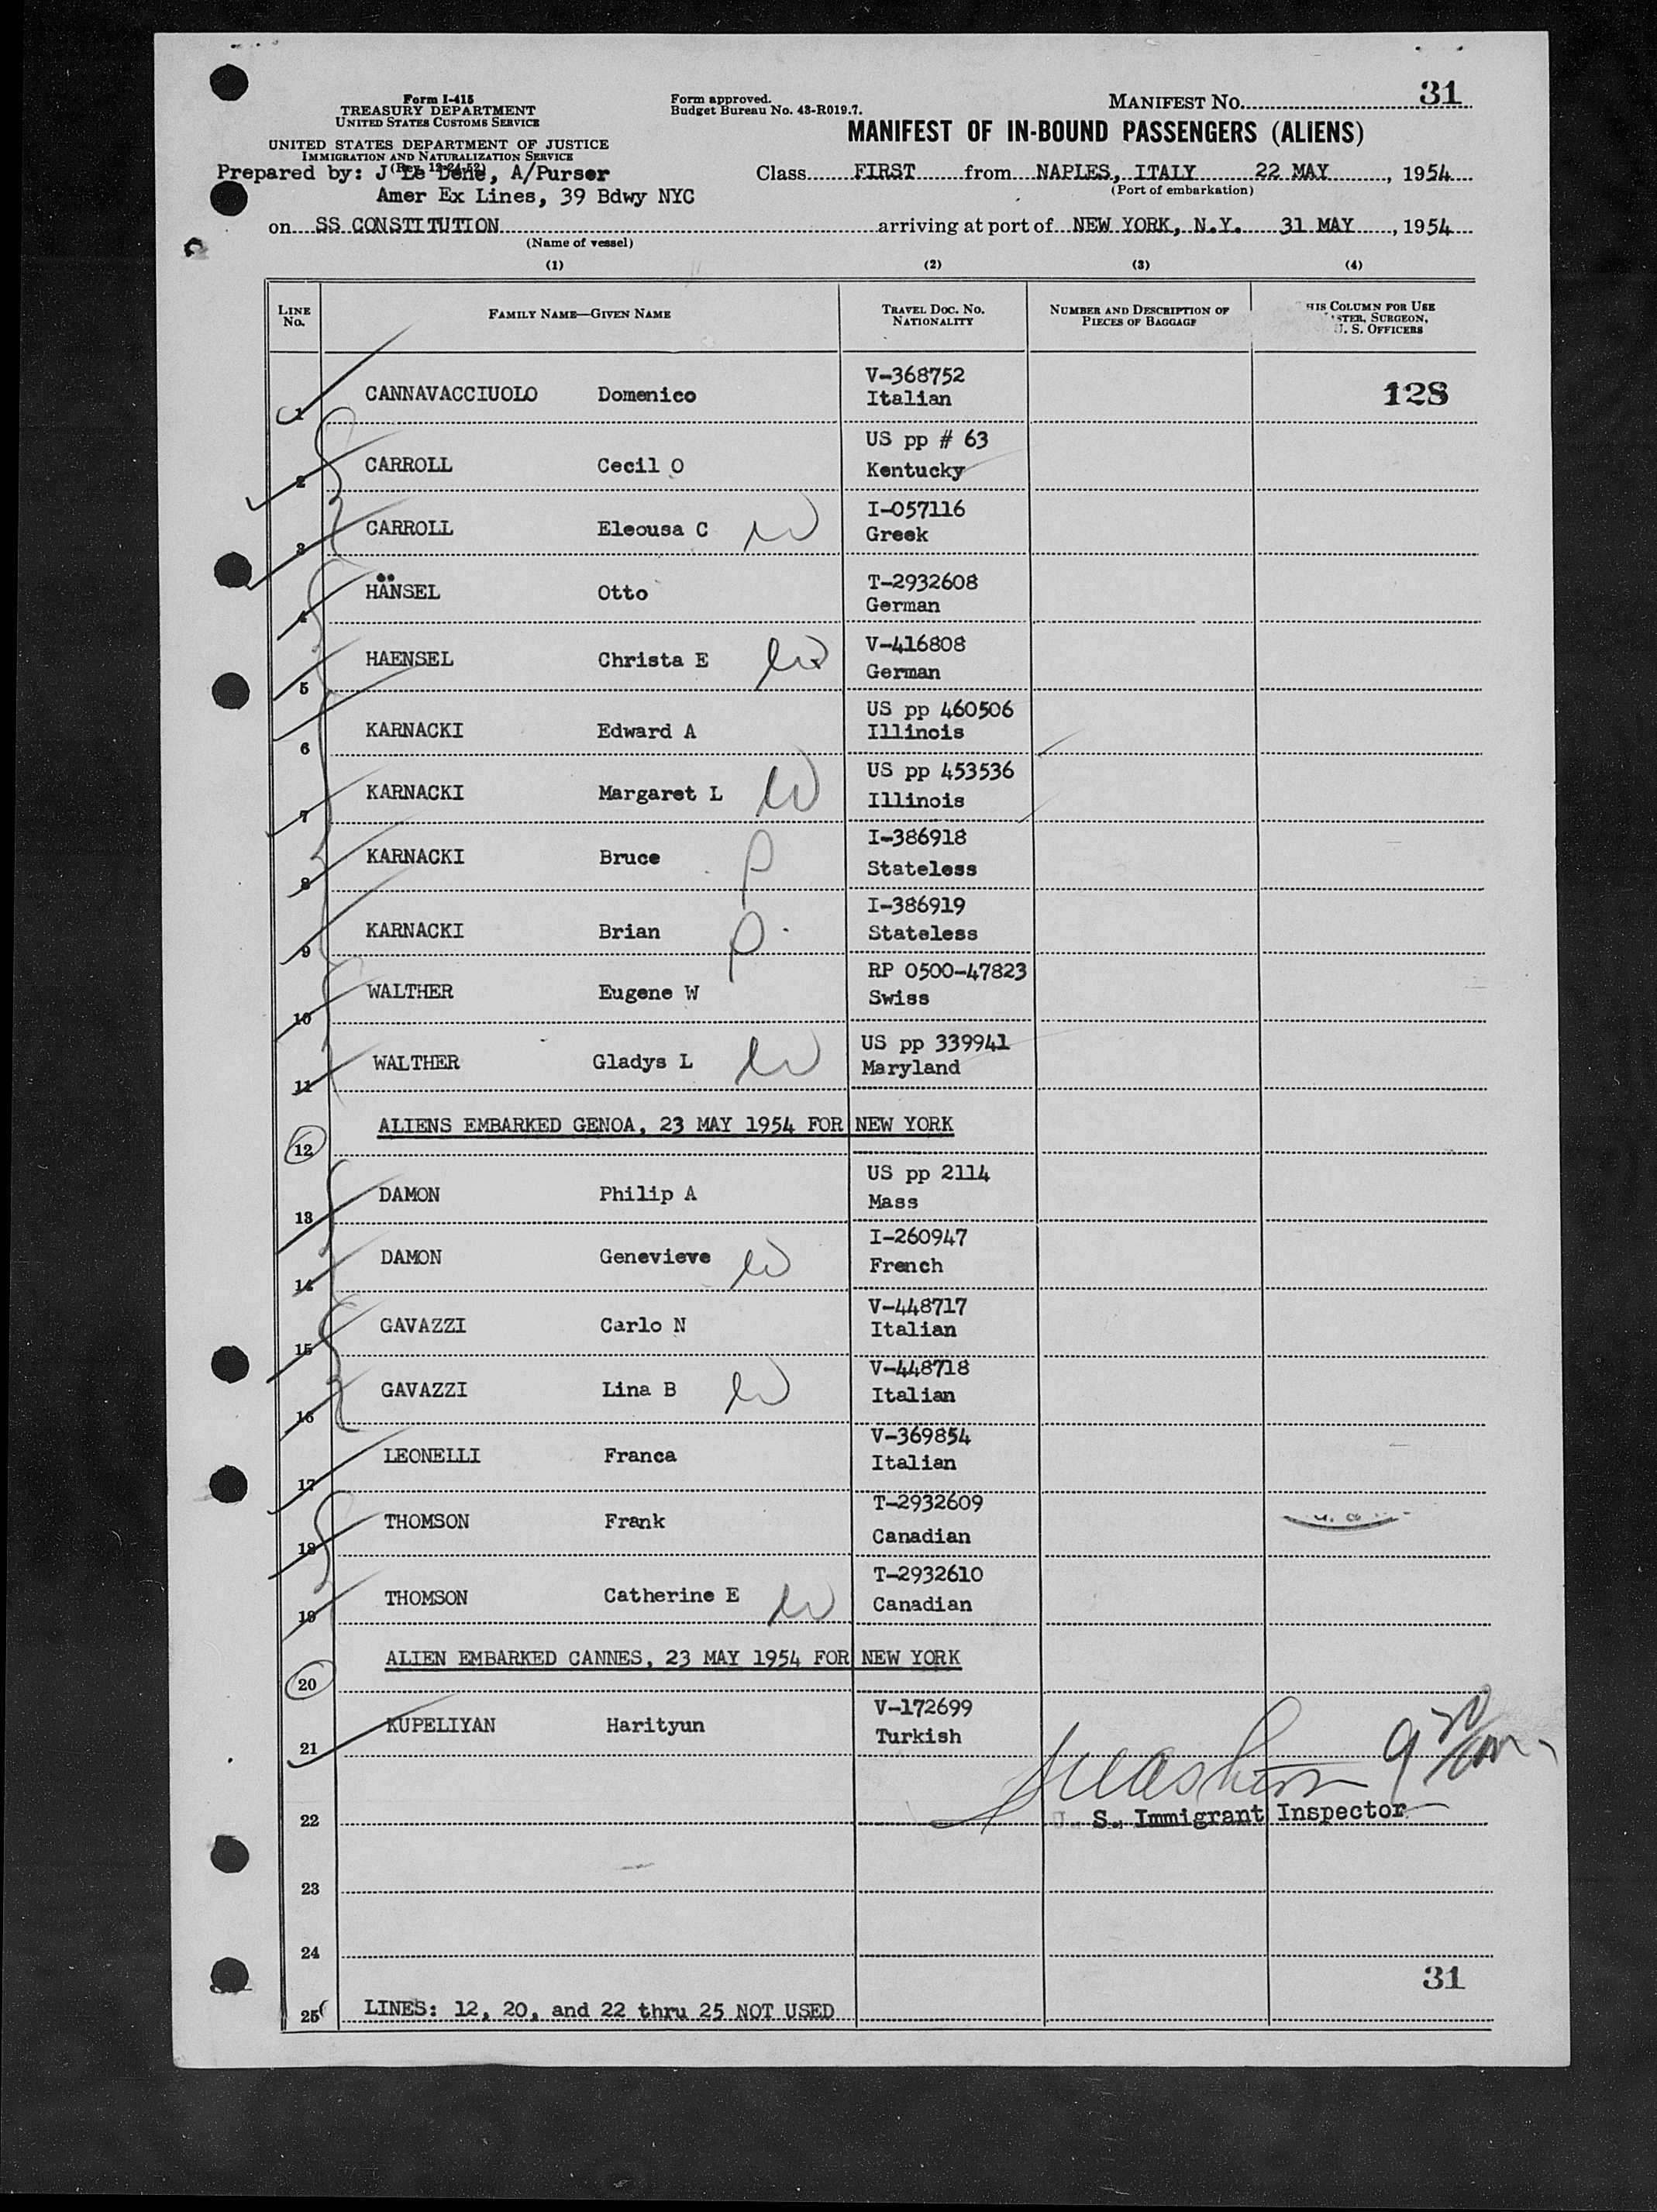 31
Form I-415
TREASURY DEPARTMENT
UNITED STATES CUSTOMS SERVICE
Form approved.
Budget Bureau No. 43-R019.7.
MANIFEST No.
MANIFEST OF IN-BOUND PASSENGERS (ALIENS)
UNITED STATES DEPARTMENT OF JUSTICE
IMMIGRATION AND NATURALIZATION SERVICE
Prepared by: J Le Dene, A/Purser
Class FIRST from NAPLES, ITALY 22 MAY, 1954
(Port of embarkation)
Amer Ex Lines, 39 Bdwy NYC
on SS CONSTITUTION arriving at port of NEW YORK, N.Y. 31 MAY, 1954
(Name of vessel)
(1) (2) (3) (4)
LINE No. FAMILY NAME—GIVEN NAME TRAVEL DOC. NO. NATIONALITY NUMBER AND DESCRIPTION OF PIECES OF BAGGAGE HIS COLUMN FOR USE STER, SURGEON, U. S. OFFICERS
1 CANNAVACCIUOLO Domenico V-368752 Italian 128
2 CARROLL Cecil O US pp # 63 Kentucky
3 CARROLL Eleousa C W I-057116 Greek
4 HÄNSEL Otto T-2932608 German
5 HAENSEL Christa E W V-416808 German
6 KARNACKI Edward A US pp 460506 Illinois
7 KARNACKI Margaret L W US pp 453536 Illinois
8 KARNACKI Bruce P I-386918 Stateless
9 KARNACKI Brian P I-386919 Stateless
10 WALTHER Eugene W RP 0500-47823 Swiss
11 WALTHER Gladys L W US pp 339941 Maryland
12 ALIENS EMBARKED GENOA, 23 MAY 1954 FOR NEW YORK
13 DAMON Philip A US pp 2114 Mass
14 DAMON Genevieve W I-260947 French
15 GAVAZZI Carlo N V-448717 Italian
16 GAVAZZI Lina B W V-448718 Italian
17 LEONELLI Franca V-369854 Italian
18 THOMSON Frank T-2932609 Canadian
19 THOMSON Catherine E W T-2932610 Canadian
20 ALIEN EMBARKED CANNES, 23 MAY 1954 FOR NEW YORK
21 KUPELIYAN Harityun V-172699 Turkish
22 U. S. Immigrant Inspector
23
24
31
25 LINES: 12, 20, and 22 thru 25 NOT USED